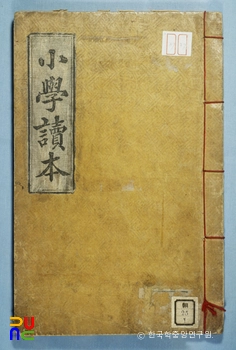 小學讀本
© 한국학중앙연구원